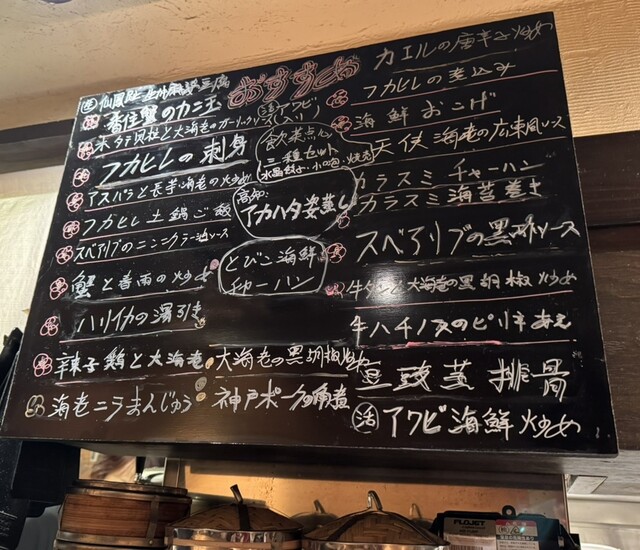 おすすめ
香住蟹のカニ玉
フカヒレの刺身
アスパラと長芋海老の炒め
フカヒレ土鍋ご飯
スペアリブのニンニクラー油ソース
蟹と春雨の炒め
ハリイカの湯引き
辣子鶏と大海老
海老ニラまんじゅう
活アワビ
飲茶点心
三種セット
高知
アカハタ姿蒸し
とびこ海鮮
チャーハン
大海老の黒胡椒炒め
神戸ポークの角煮
カエルの唐辛子炒め
フカヒレの煮込み
海鮮おこげ
天使海老の広東風ソース
カラスミチャーハン
カラスミ海苔巻き
スペアリブの黒酢ソース
大海老の黒胡椒炒め
牛ハチノスのピリ辛あえ
豆豉蒸排骨
活 アワビ海鮮炒め
FLOJET